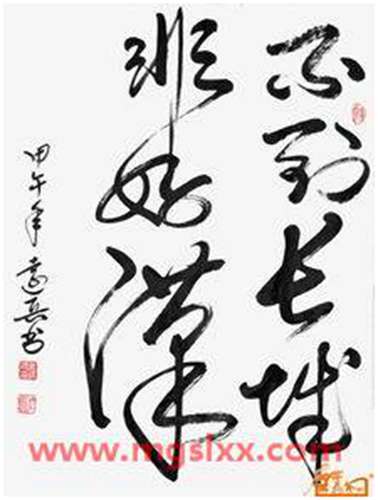 不到长城
非好漢
甲午年
www.mgslxx.com